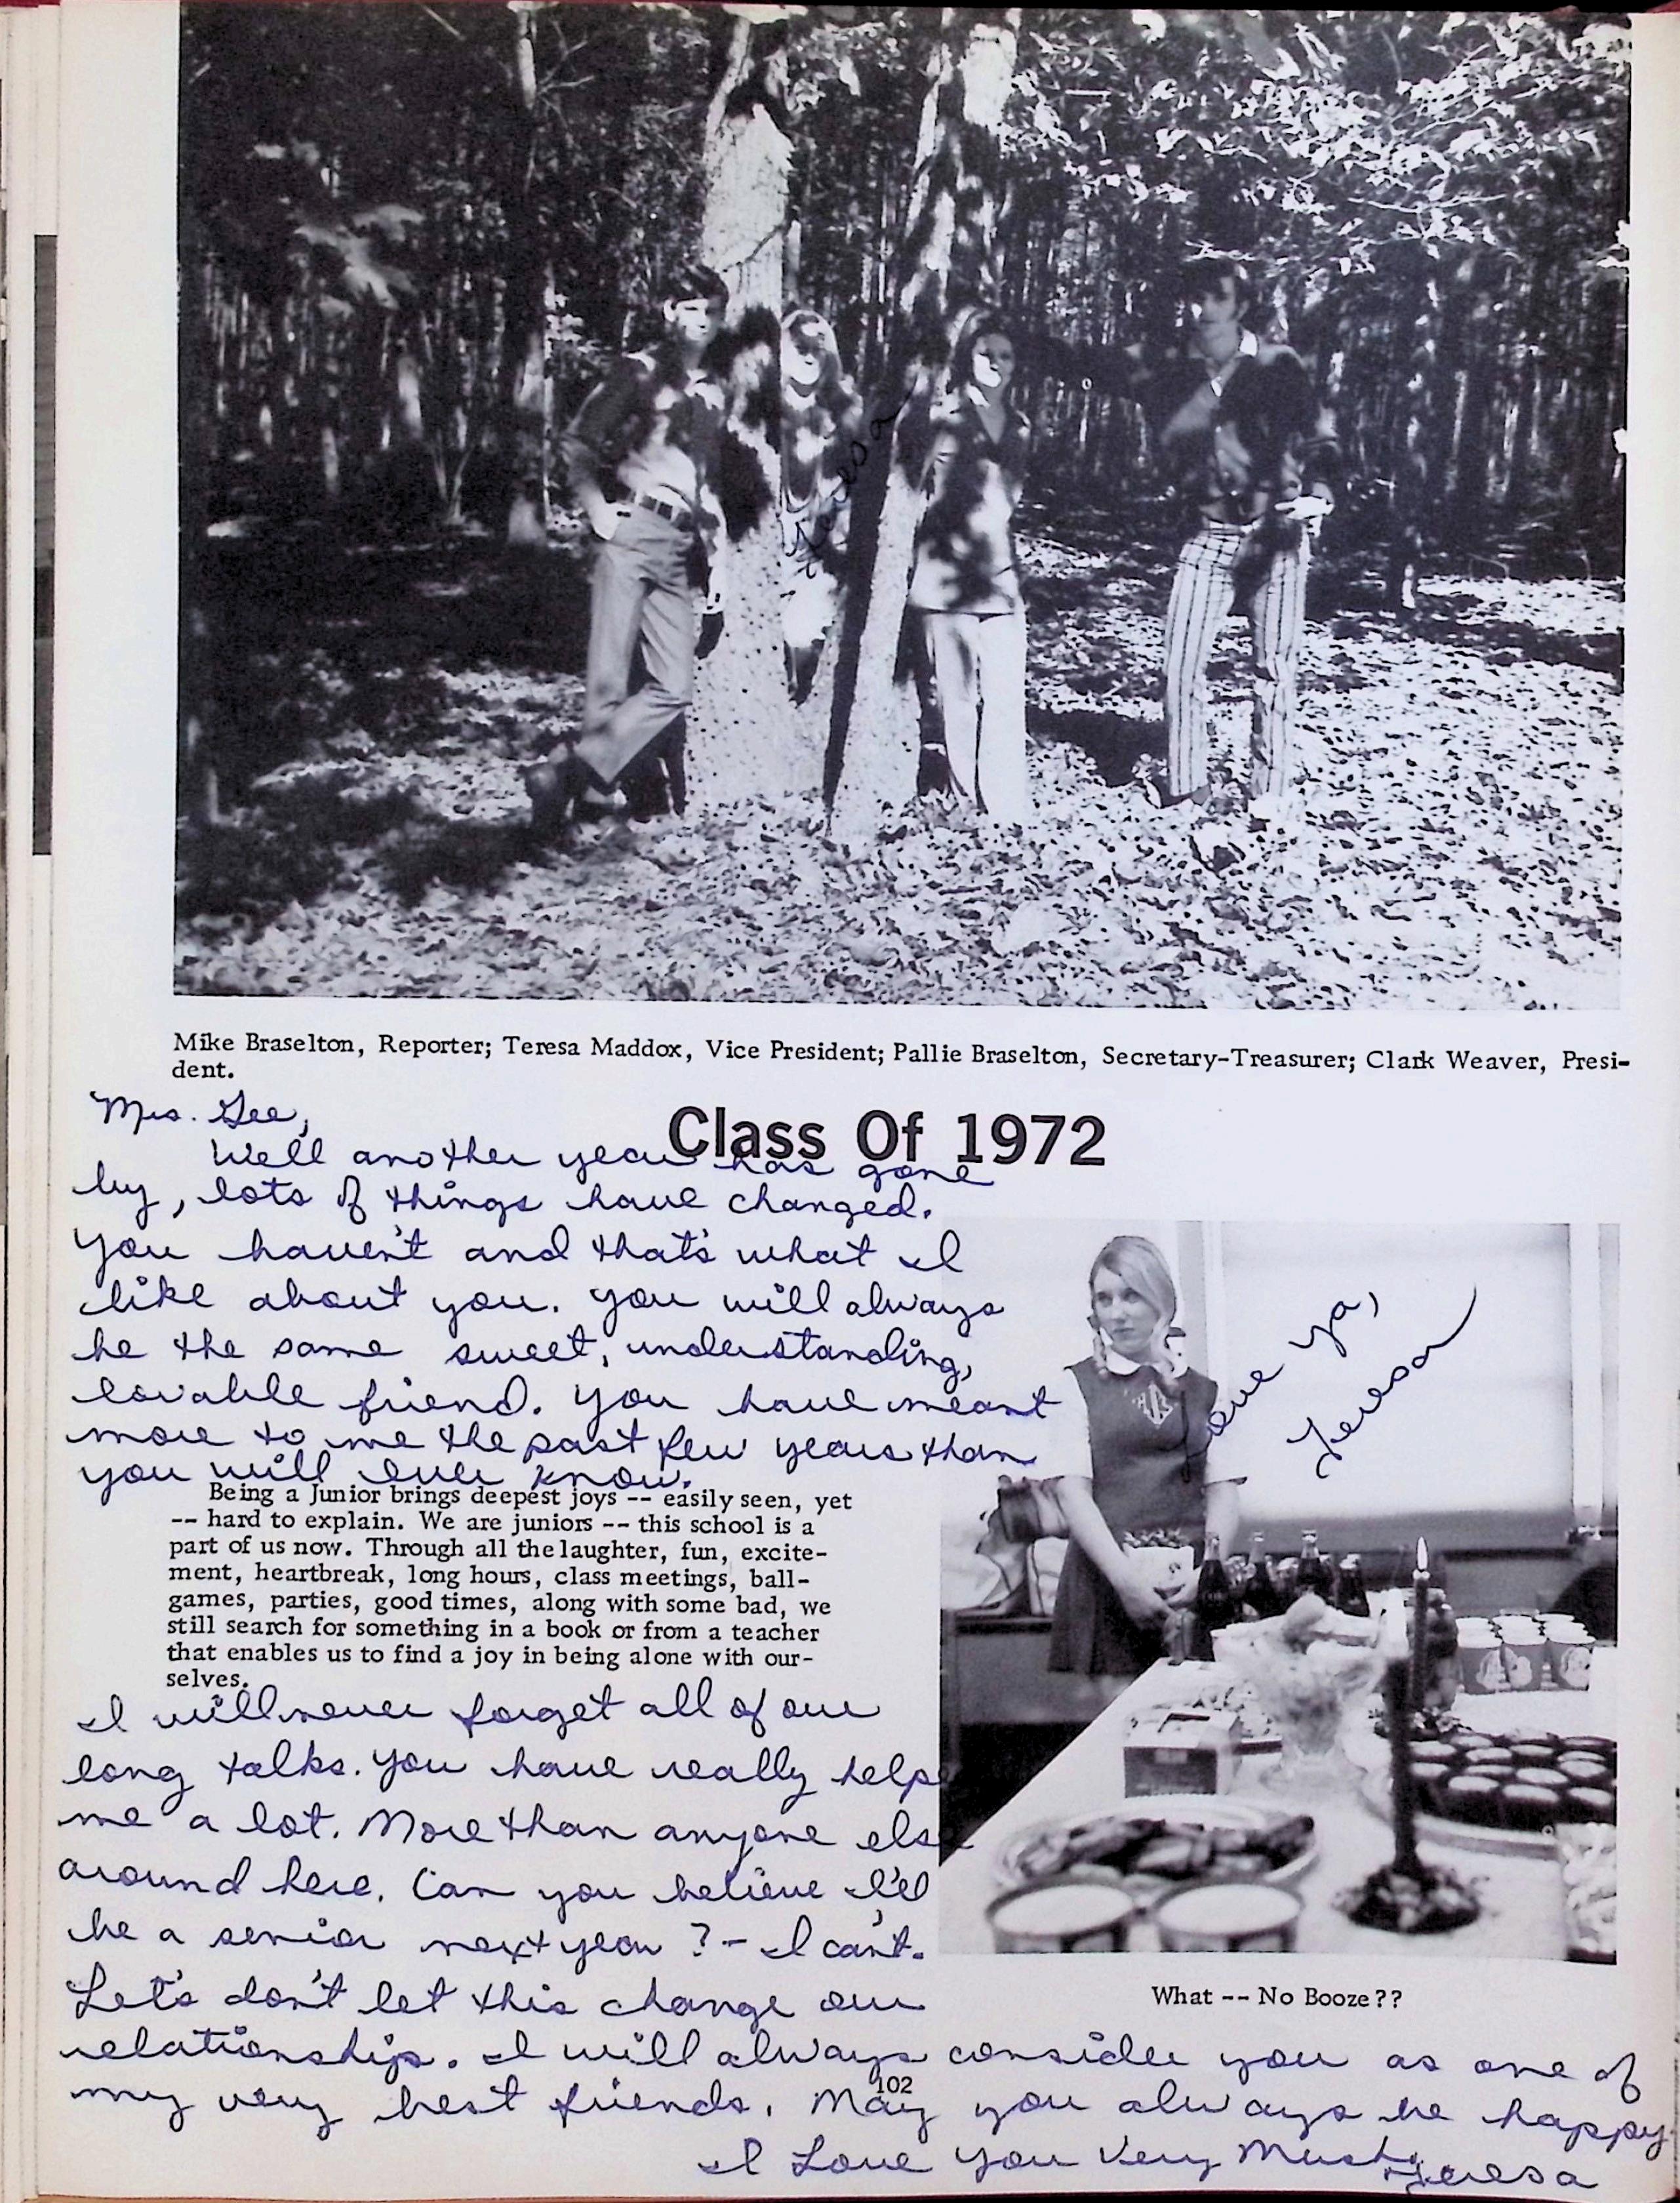 Teresa
Mike Braselton, Reporter; Teresa Maddox, Vice President; Pallie Braselton, Secretary-Treasurer; Clark Weaver, Presi-
dent.
Class Of 1972
Mrs. Gee,
Well another year has gone
by, lots of things have changed.
You haven't and that's what I
like about you. You will always
be the same sweet, understanding,
lovable friend. You have meant
more to me the past few years than
you will ever know.
Love ya,
Teresa
Being a Junior brings deepest joys -- easily seen, yet
-- hard to explain. We are juniors -- this school is a
part of us now. Through all the laughter, fun, excite-
ment, heartbreak, long hours, class meetings, ball-
games, parties, good times, along with some bad, we
still search for something in a book or from a teacher
that enables us to find a joy in being alone with our-
selves.
I will never forget all of our
long talks. You have really helpe
me a lot. More than anyone else
around here. Can you believe I'll
be a senior next year? - I can't.
Let's don't let this change our
relationship. I will always consider you as one of
my very best friends. May you always be happy.
I Love You Very Much,
Teresa
What -- No Booze??
102